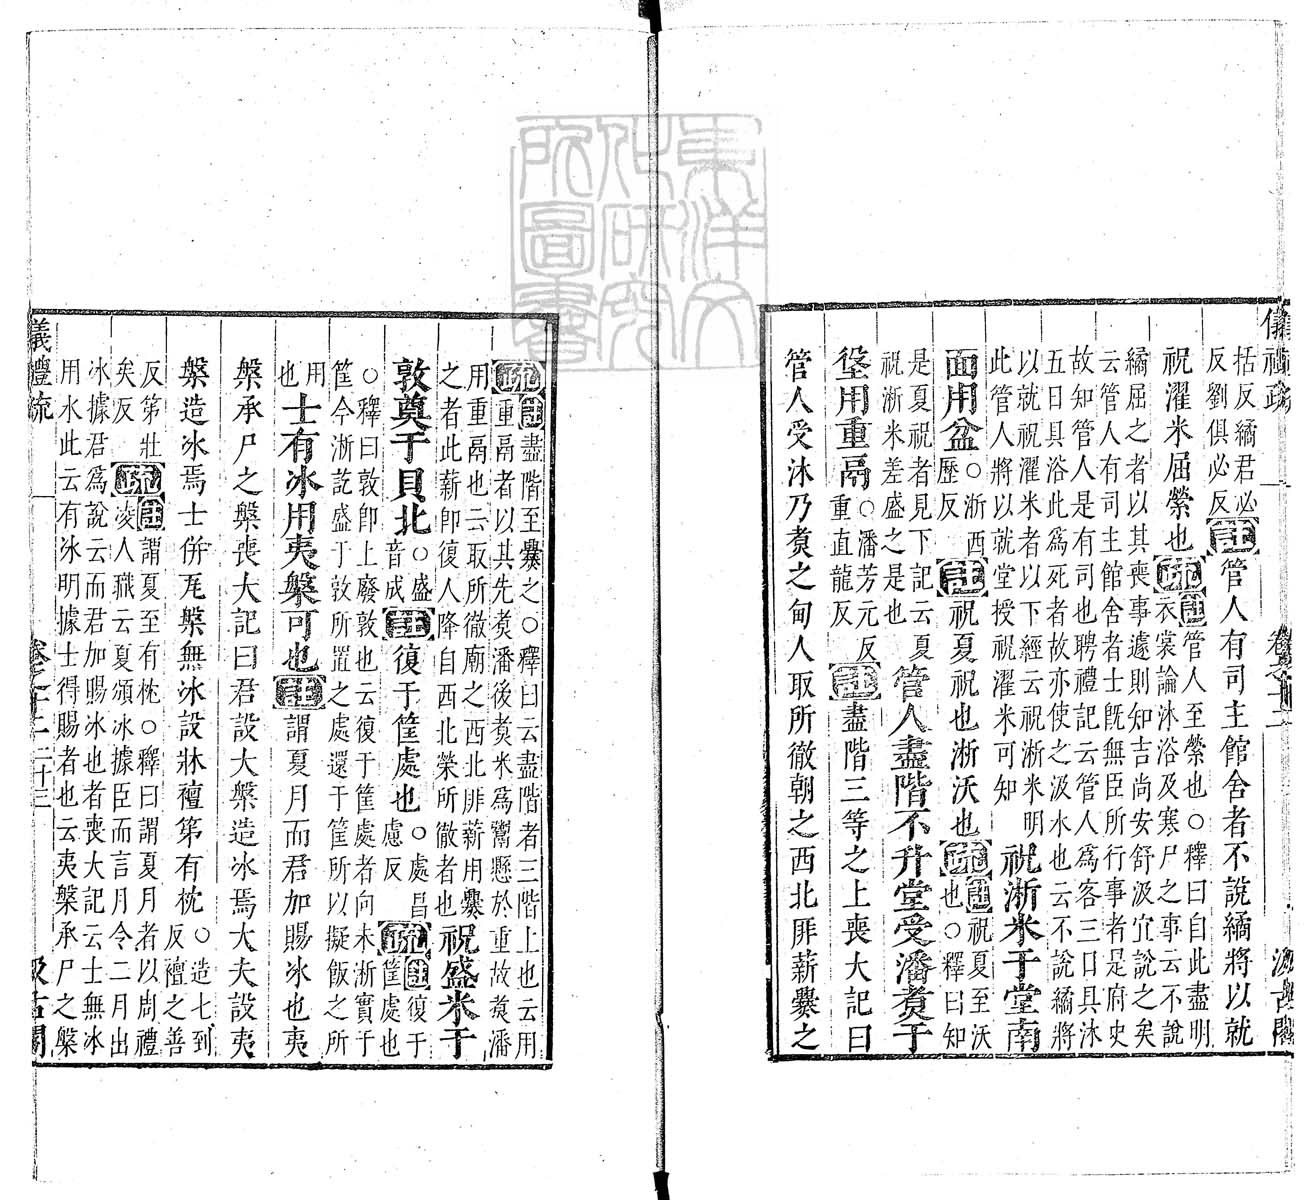 儀禮疏 卷十二 汲古閣
括反繘君必
反劉俱必反
註管人有司主館舍者不說繘將以就
祝濯米屈縈也
疏衣裳論沐浴及寒尸之事云不說
註管人至縈也○釋曰自此盡明
繘屈之者以其喪事遽則知吉尚安舒汲宜說之矣
云管人有司主館舍者士旣無臣所行事者是府史
故知管人是有司也聘禮記云管人爲客三日具沐
五日具浴此爲死者故亦使之汲水也云不說繘將
以就祝濯米者以下經云祝淅米明
此管人將以就堂授祝濯米可知
祝淅米于堂南
面用盆
○淅西
歷反
註祝夏祝也淅沃也
疏註祝夏至沃
也○釋曰知
是夏祝者見下記云夏
祝淅米差盛之是也
管人盡階不升堂受潘煑于
垼用重鬲
○潘芳元反
重直龍反
註盡階三等之上喪大記曰
管人受沐乃煑之甸人取所徹朝之西北厞薪爨之
疏註盡階至爨之○釋曰云盡階者三階上也云用
重鬲者以其先煑潘後煑米爲鬻懸於重故煑潘
用重鬲也云取所徹廟之西北厞薪用爨
之者此薪卽復人降自西北榮所徹者也
祝盛米于
敦奠于貝北
○盛
音成
註復于筐處也
○處昌
慮反
疏註復于
筐處也
○釋曰敦卽上廢敦也云復于筐處者向未淅實于
筐今淅訖盛于敦所置之處還于筐所以擬飯之所
用
也
士有冰用夷槃可也
註謂夏月而君加賜冰也夷
槃承尸之槃喪大記曰君設大槃造冰焉大夫設夷
槃造冰焉士併瓦槃無冰設牀襢第有枕
○造七到
反襢之善
反第壯
矣反
疏註謂夏至有枕○釋曰謂夏月者以周禮
凌人職云夏頒冰據臣而言月令二月出
冰據君爲說云而君加賜冰也者喪大記云士無冰
用水此云有冰明據士得賜者也云夷槃承尸之槃
儀禮疏 卷十二 二十三 汲古閣
東洋文化研究所圖書